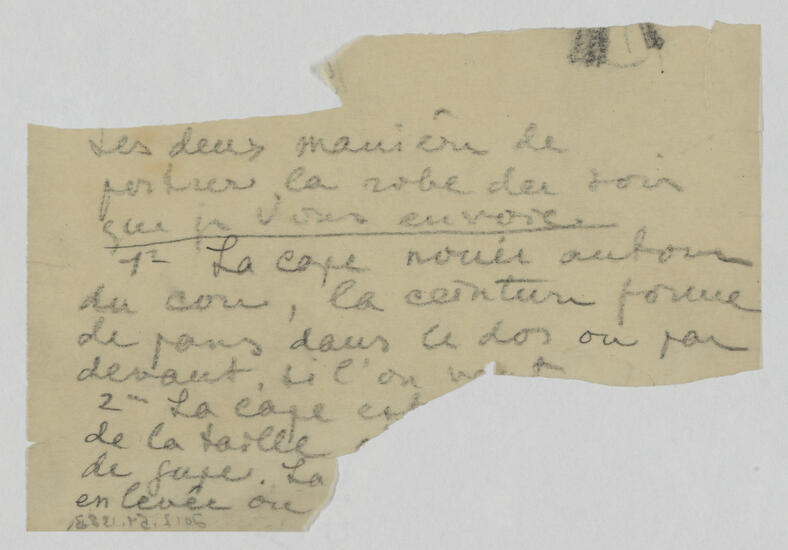 Les deux manière de
porter la robe du soir
que je vous envoie.
1° La cape nouée autour
du cou, la ceinture forme
de pans dans le dos ou par
devant, si l'on veut
2° La cape est
de la taille
de jupe. La
enlevée ou